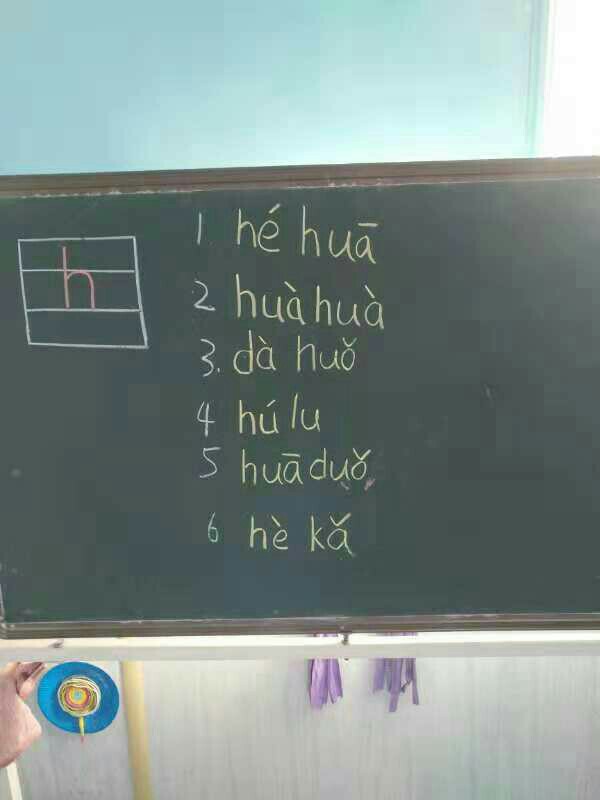 h
1. hé huā
2 huà huà
3. dà huǒ
4 hú lu
5 huā duǒ
6 hè kǎ